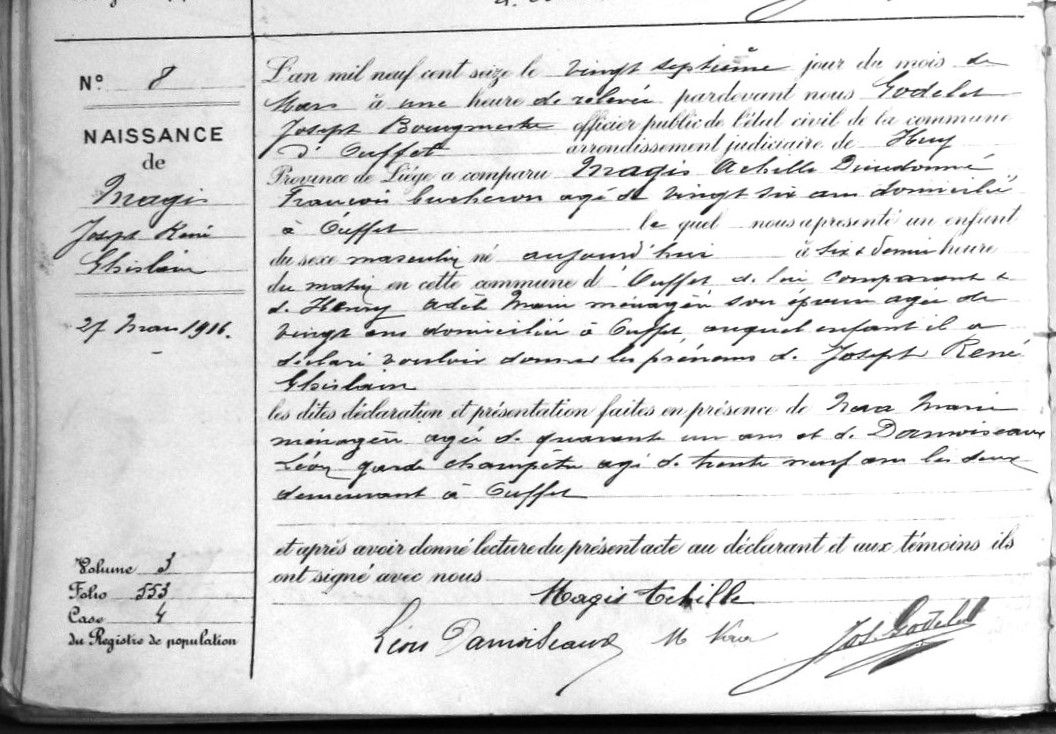 N° 8
NAISSANCE
de
Magis
Joseph René
Ghislain
27 Mars 1916.
Volume 5
Folio 553
Case 4
du Registre de population
L'an mil neuf cent seize le vingt septième jour du mois de
Mars à une heure de relevée pardevant nous Godelet
Joseph Bourgmestre officier public de l'état civil de la commune
d'Ouffet arrondissement judiciaire de Huy
Province de Liége a comparu Magis Achille Dieudonné
François bucheron agé de vingt six ans domicilié
à Ouffet le quel nous a presenté un enfant
du sexe masculin né aujourd'hui à six & demie heure
du matin en cette commune d'Ouffet de lui comparant &
de Henry Adèle Marie ménagère son épouse agée de
vingt ans domiciliée à Ouffet, auquel enfant il a
déclaré vouloir donner les prénoms de Joseph René
Ghislain
les dites déclaration et présentation faites en présence de Marie
ménagère agée de quarante un ans et de Damoiseaux
Léon garde champêtre agé de trente neuf ans les deux
demeurant à Ouffet
et après avoir donné lecture du présent acte au déclarant et aux témoins ils
ont signé avec nous
Magis Achille
Léon Damoiseaux M Jos. Godelet